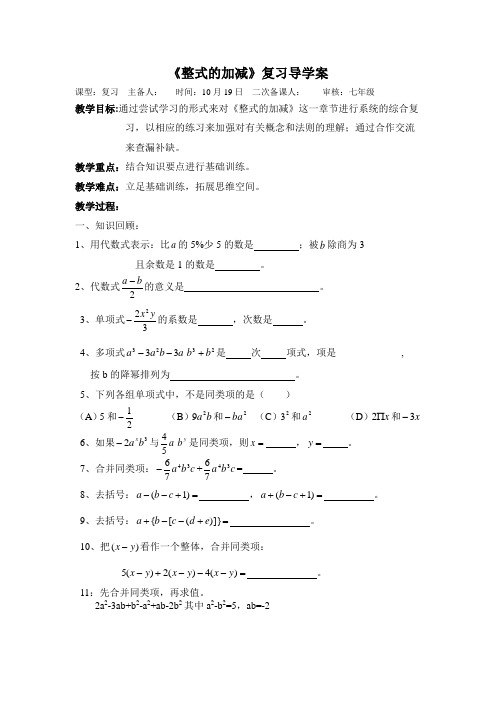 《整式的加减》复习导学案
课型：复习 主备人： 时间：10月19日 二次备课人： 审核：七年级
教学目标:通过尝试学习的形式来对《整式的加减》这一章节进行系统的综合复
习，以相应的练习来加强对有关概念和法则的理解；通过合作交流
来查漏补缺。
教学重点：结合知识要点进行基础训练。
教学难点：立足基础训练，拓展思维空间。
教学过程：
一、知识回顾：
1、用代数式表示：比a的5%少5的数是 ；被b除商为3
且余数是1的数是 。
2、代数式(a-b)/2的意义是 。
3、单项式-2x²y/3的系数是 ，次数是 。
4、多项式a³-3a²b-3a b³+b²是 次 项式，项是 ，
按b的降幂排列为 。
5、下列各组单项式中，不是同类项的是（ ）
（A）5和-1/2 （B）9a²b和-ba² （C）3²和a² （D）2Πx和-3x
6、如果-2aˣb³与4/5 a bʸ是同类项，则x= ，y= 。
7、合并同类项：-6/7 a⁴b³c+6/7 a⁴b³c= 。
8、去括号：a-(b-c+1)= ，a+(-b-c+1)= 。
9、去括号：a+{b-[c-(d+e)]}= 。
10、把(x-y)看作一个整体，合并同类项：
5(x-y)+2(x-y)-4(x-y)= 。
11：先合并同类项，再求值。
2a²-3ab+b²-a²+ab-2b² 其中a²-b²=5，ab=-2